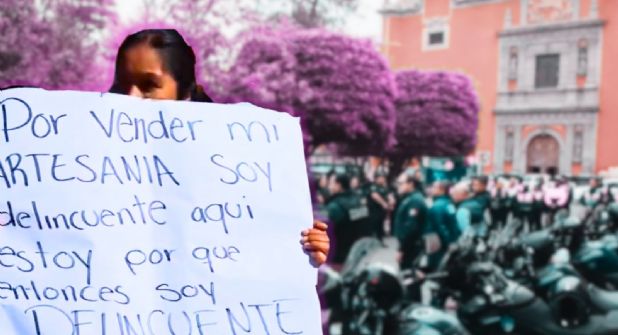 Por vender mi
ARTESANIA SOY
delincuente aqui
estoy por que
entonces soy
DELINCUENTE